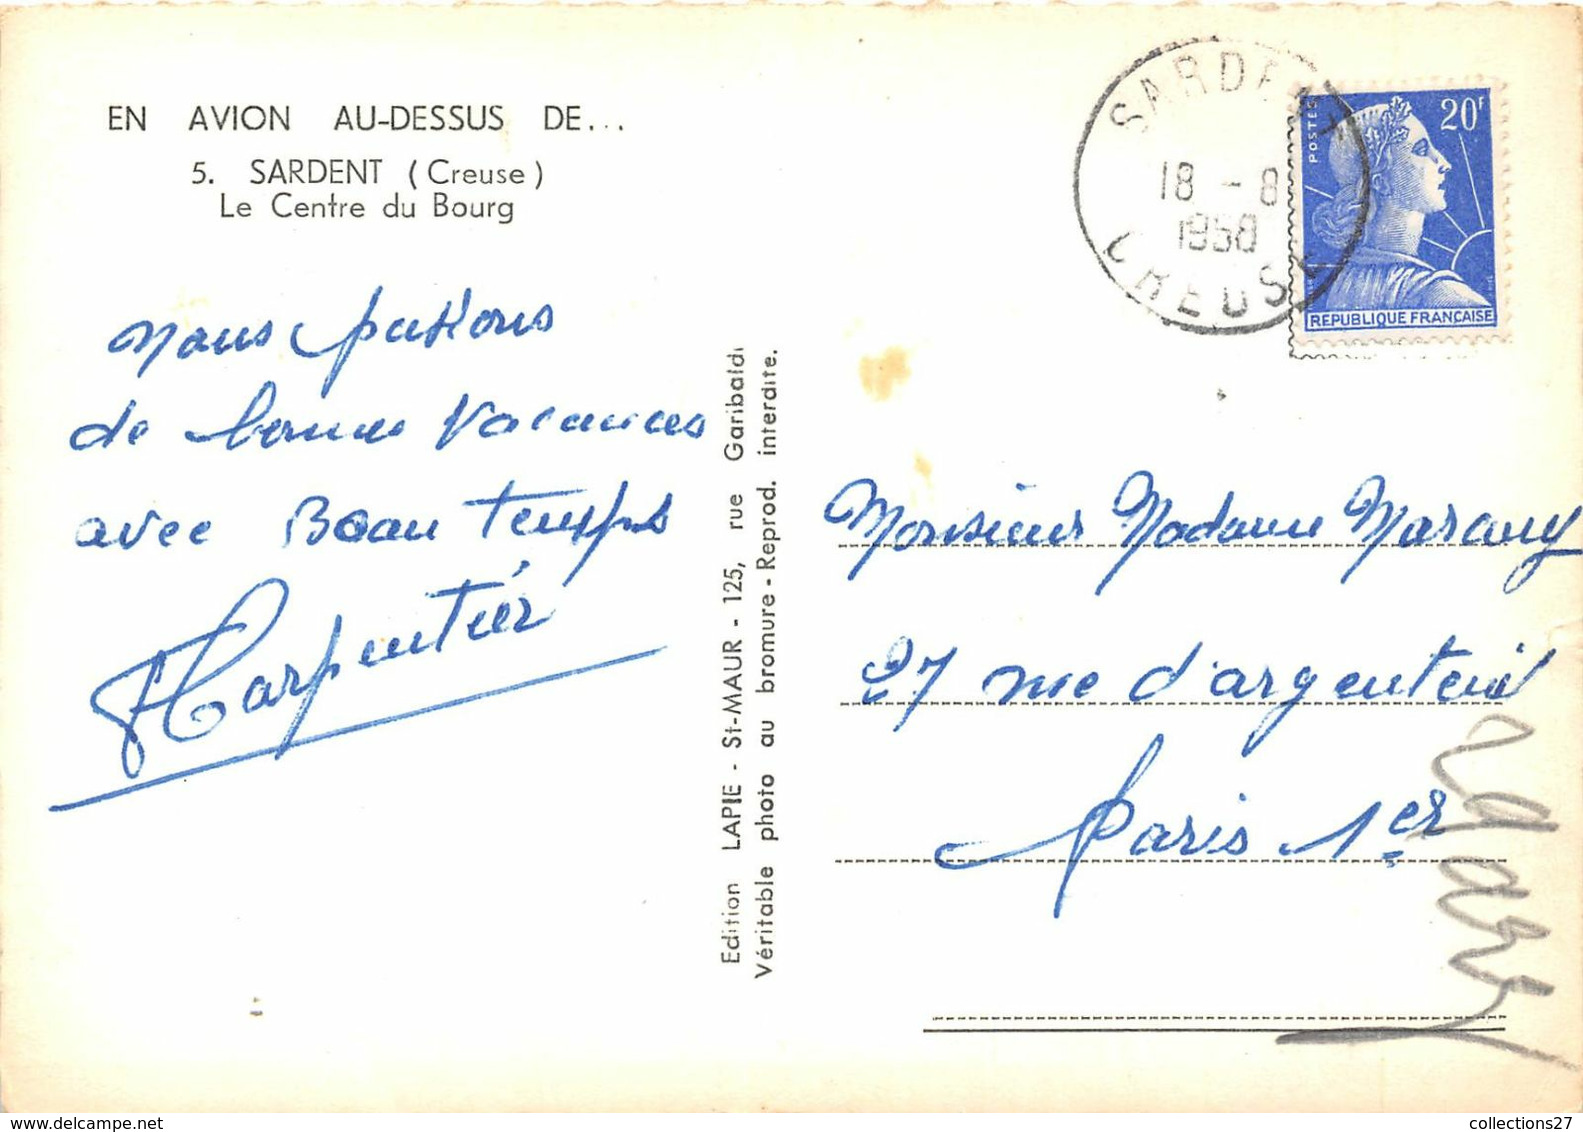 EN AVION AU-DESSUS DE...
5. SARDENT (Creuse)
Le Centre du Bourg
Nous passons
de bonnes vacances
avec Beau temps
Carpentier
Edition LAPIE - St-MAUR - 125, rue Garibaldi
Véritable photo au bromure - Reprod. interdite.
SARDENT
18 - 8
1958
CREUSE
POSTES
20F
REPUBLIQUE FRANÇAISE
Monsieur Madame
27 rue d'argenteuil
Paris 1er
collections27